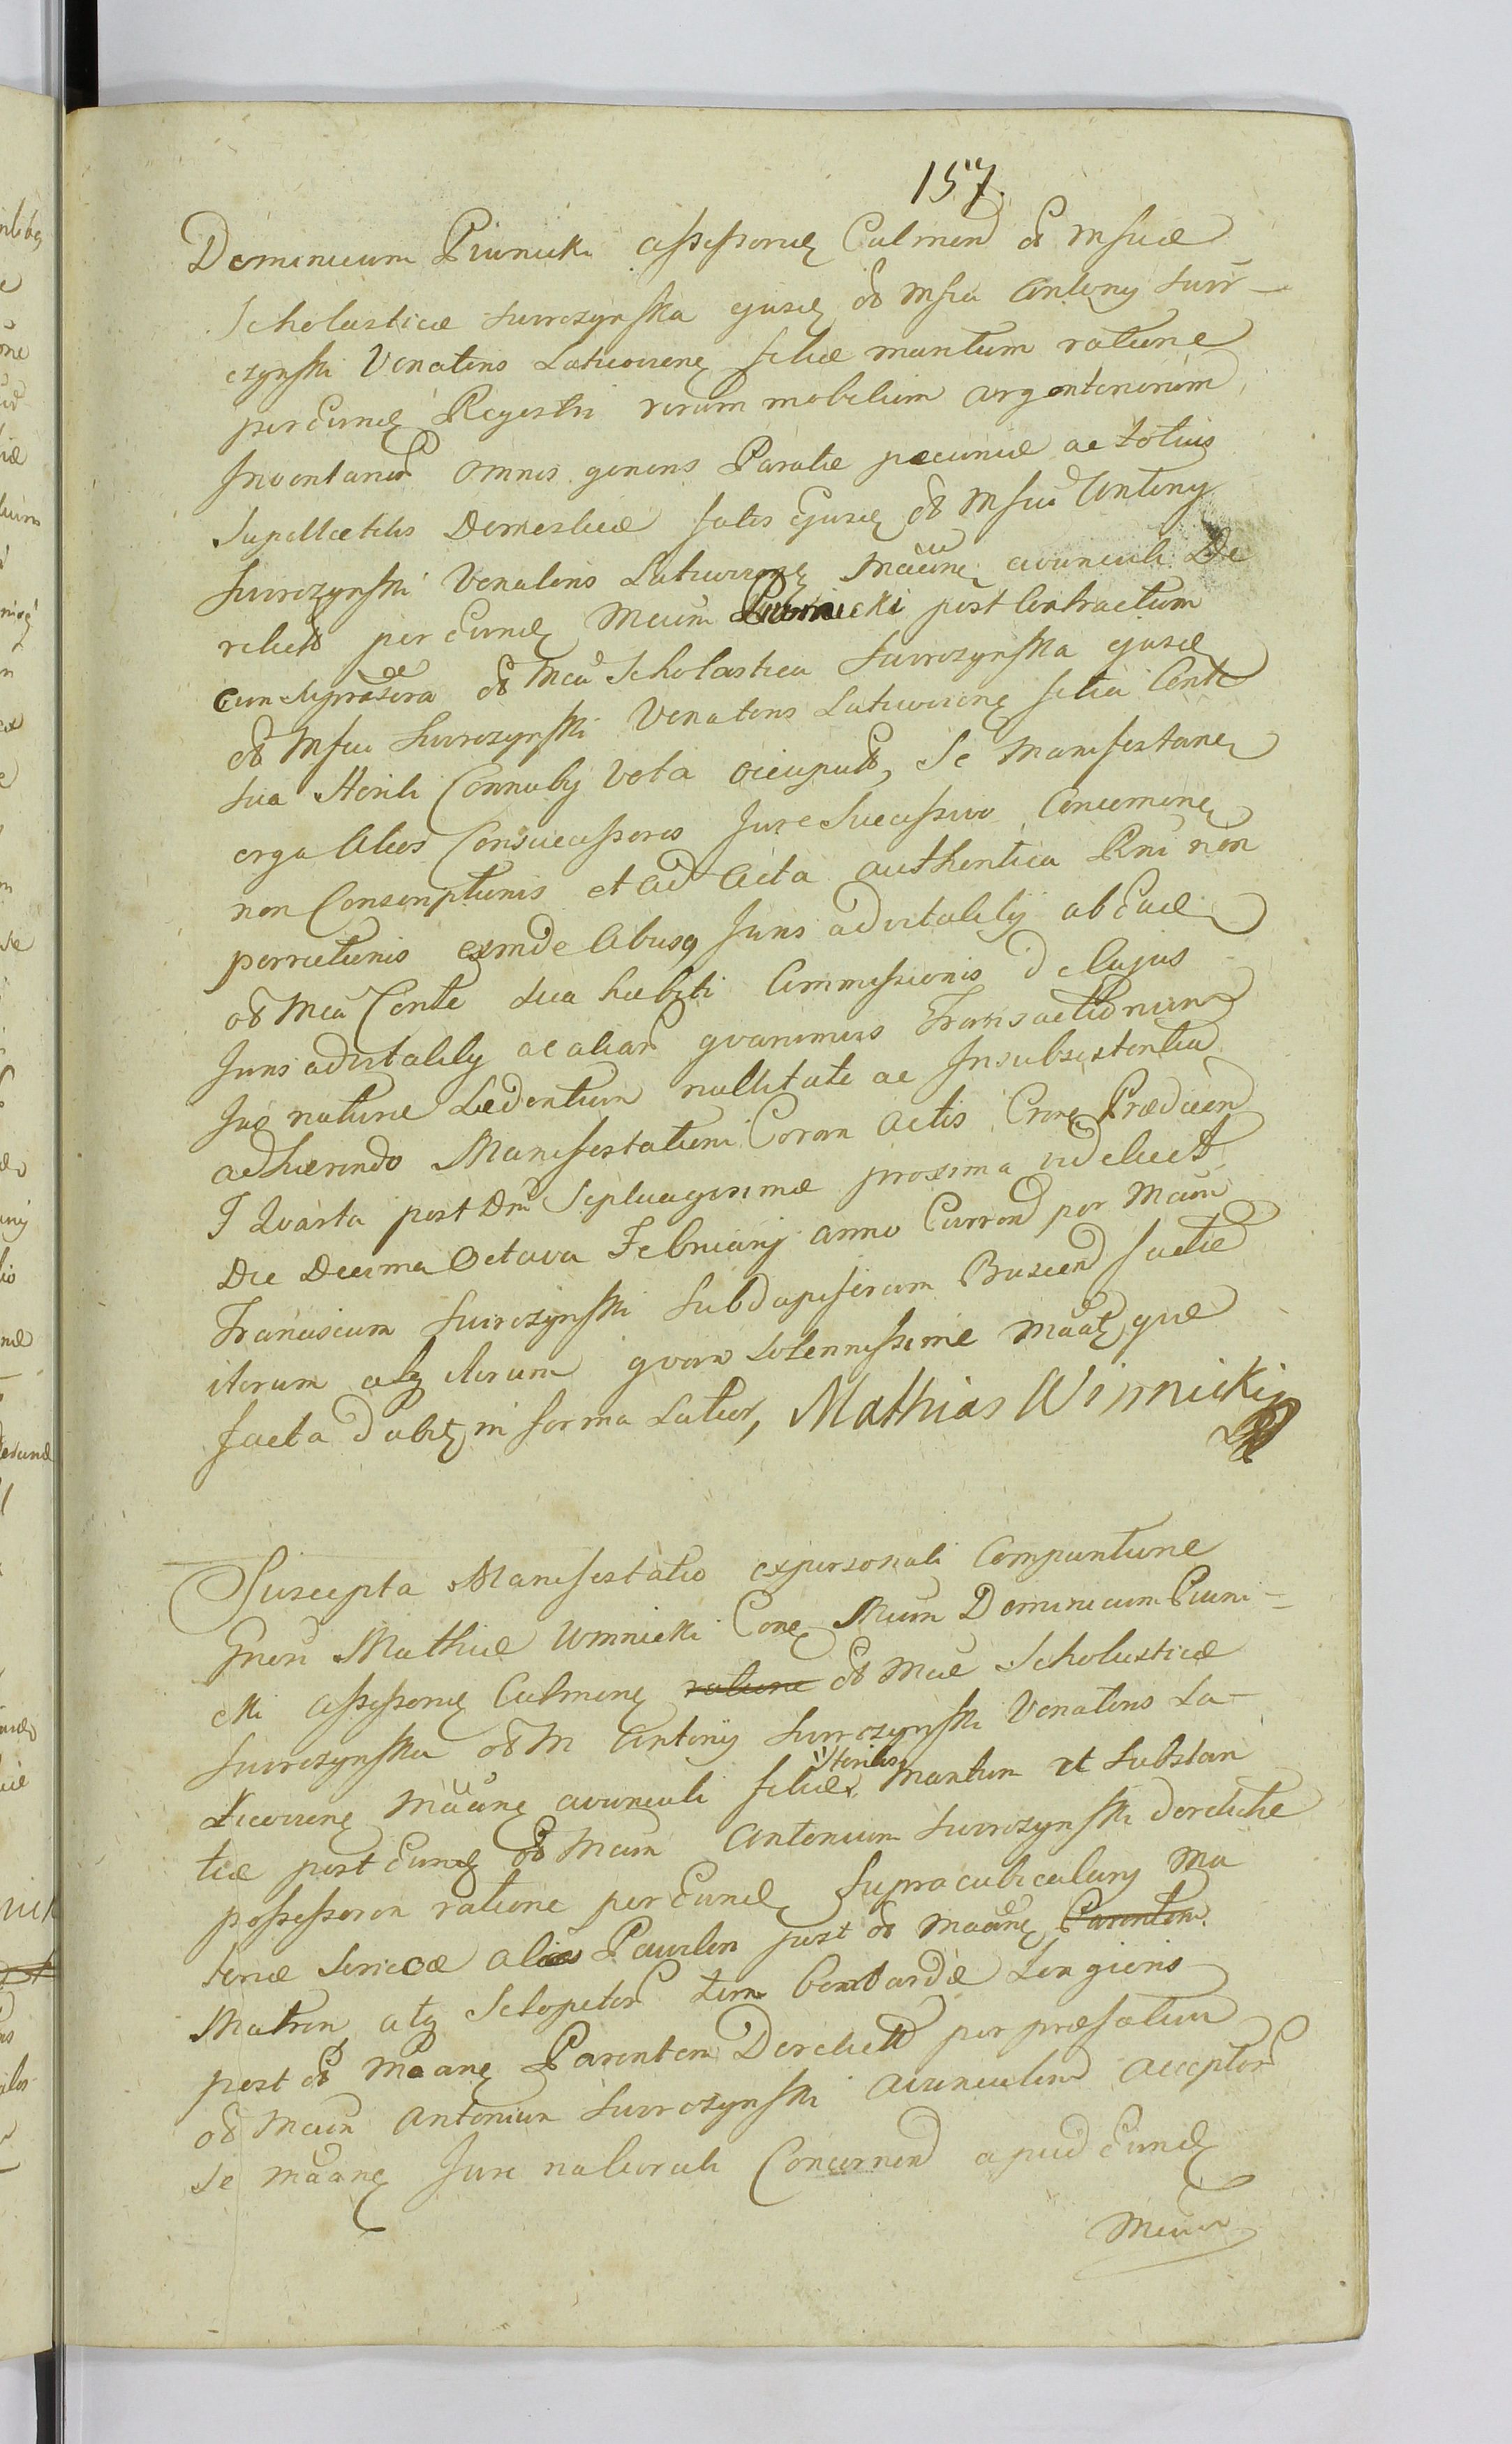 157.
Dominicum Piwnicki assessorem Culmen et Msficae
Scholasticae Surrczynska ejusd ol Msfici Antony Surr-
czynski Venatoris Latyczoviens filiae maritum ratione
per Eund Regestri rerum mobilium argenteriarum
Inventarior omnis generis Paratae pecuniae ac totius
Supellectilis Domesticae satis Ejusd ol Msfici Antony
Surrczynski Venatoris Latyczoviens Maane avunculi De
relict per Eund Mcum Piwnicki post Contractum
cum de praesera ol Mca Scholastica Surrczynska ejusd
ol Msfici Surrczynski Venatoris Latyczoviens filia Conte
sua Sterili Connuby Vota occupat, Se Manifestane
erga Alios Consuccessores Jure Successivo Concernen
non Conscriptionis et ad Acta authentica Pnii non
porrectionis exinde Abusq Juris advitality ab Ead
ol Mca Conte sua habiti Commissionis de Cujus
Juris advitality ac aliar quarumvis Transactionum
Jus naturae Laedentium nullitate ac Insubsistentia
adhaerendo Manifestationi Coram Actis Crone Praedicen
F Quarta post Dm Septuagesimae proxima videlicet
Die Decima Octava February anno Currend per Mcum
Franciscum Surrczynski Subdapiferum Buscen factae
iterum atq iterum quam Solennissime Maate quae
facta dabit in forma Latior, Mathias Winnicki

Suscepta Manifestatio ex personali Comparitione
Gnosi Mathiae Winnicki Cone Mcum Dominicum Piwni-
cki assessorem Culmens ratione ol Mcae Scholasticae
Surrczynska ol M Antonij Surrczynski Venatoris La-
ticoviens Maane avunculi filiae Sterilis maritum et Substan
tiae post Eund ol Mcum Antonium Surrczynski derelictae
possessorem ratione per Eund Supracubiculary Ma
teriae Sericeae alias Pawilon post ol Maane Parentem
Matrem, atq Sclopetor tum bombardae Longioris
post ol Maane Parentem Derelict per praefatum
ol Mcum Antonium Surrczynski avunculum acceptor
se Maane Jure naturali Concernend apud Eund
Mcum